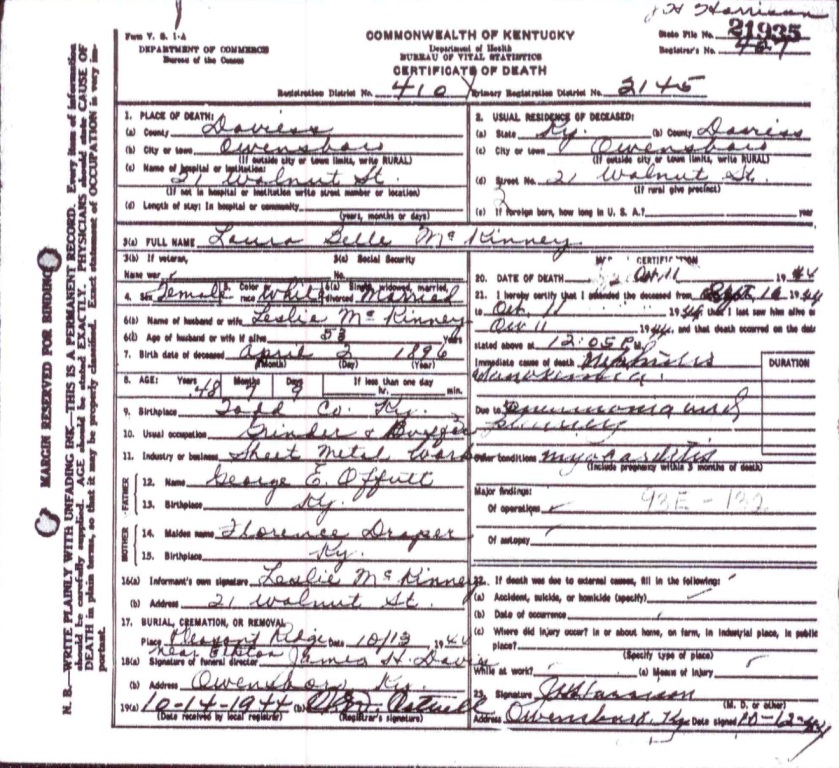 J H Harrison
Form V. S. 1-A
DEPARTMENT OF COMMERCE
Bureau of the Census
COMMONWEALTH OF KENTUCKY
Department of Health
BUREAU OF VITAL STATISTICS
CERTIFICATE OF DEATH
State File No. 21935
Registrar's No. 427
Registration District No. 410 Primary Registration District No. 2145
MARGIN RESERVED FOR BINDING
N. B.—WRITE PLAINLY WITH UNFADING INK—THIS IS A PERMANENT RECORD. Every item of information
should be carefully supplied. AGE should be stated EXACTLY. PHYSICIANS should state CAUSE OF
DEATH in plain terms, so that it may be properly classified. Exact statement of OCCUPATION is very im-
portant.
1. PLACE OF DEATH:
(a) County Daviess
(b) City or town Owensboro
(If outside city or town limits, write RURAL)
(c) Name of hospital or institution:
21 Walnut St.
(If not in hospital or institution write street number or location)
(d) Length of stay: In hospital or community
(years, months or days)
2. USUAL RESIDENCE OF DECEASED:
(a) State Ky. (b) County Daviess
(c) City or town Owensboro
(If outside city or town limits, write RURAL)
(d) Street No. 21 Walnut St.
(If rural give precinct)
(e) If foreign born, how long in U. S. A.? year
3(a) FULL NAME Laura Belle McKinney
3(b) If veteran, 3(c) Social Security
Name war No.
4. Sex Female 5. Color or race White 6(a) Single, widowed, married, divorced Married
6(b) Name of husband or wife Leslie McKinney
6(c) Age of husband or wife if alive 53 years
7. Birth date of deceased April 2 1896
(Month) (Day) (Year)
8. AGE: Years Months Days If less than one day
48 9 hr. min.
9. Birthplace Todd Co. Ky.
10. Usual occupation Grinder & Buffer
11. Industry or business Sheet Metal Work
FATHER
12. Name George E. Offutt
13. Birthplace Ky.
MOTHER
14. Maiden name Florence Draper
15. Birthplace Ky.
16(a) Informant's own signature Leslie McKinney
(b) Address 21 Walnut St.
17. BURIAL, CREMATION, OR REMOVAL
Place Pleasant Ridge Date 10/13 1944
near Elkton
18(a) Signature of funeral director James H. Davis
(b) Address Owensboro Ky.
19(a) 10-14-1944 (b)
(Date received by local registrar) (Registrar's signature)
CERTIFICATION
20. DATE OF DEATH Oct 11 1944
21. I hereby certify that I attended the deceased from Sept 16 1944
to Oct. 11 1944, that I last saw him alive on
Oct 11 1944, and that death occurred on the date
stated above at 12:05 P.M.
Immediate cause of death Nephritis DURATION
Due to Pneumonia and
Other conditions myocarditis
(Include pregnancy within 3 months of death)
Major findings:
Of operations 93E - 132
Of autopsy
22. If death was due to external causes, fill in the following:
(a) Accident, suicide, or homicide (specify)
(b) Date of occurrence
(c) Where did injury occur? In or about home, on farm, in industrial place, in public
place?
(Specify type of place)
While at work? (e) Means of injury
23. Signature J H Harrison
(M. D. or other)
Address Owensboro, Ky. Date signed 10-12-44